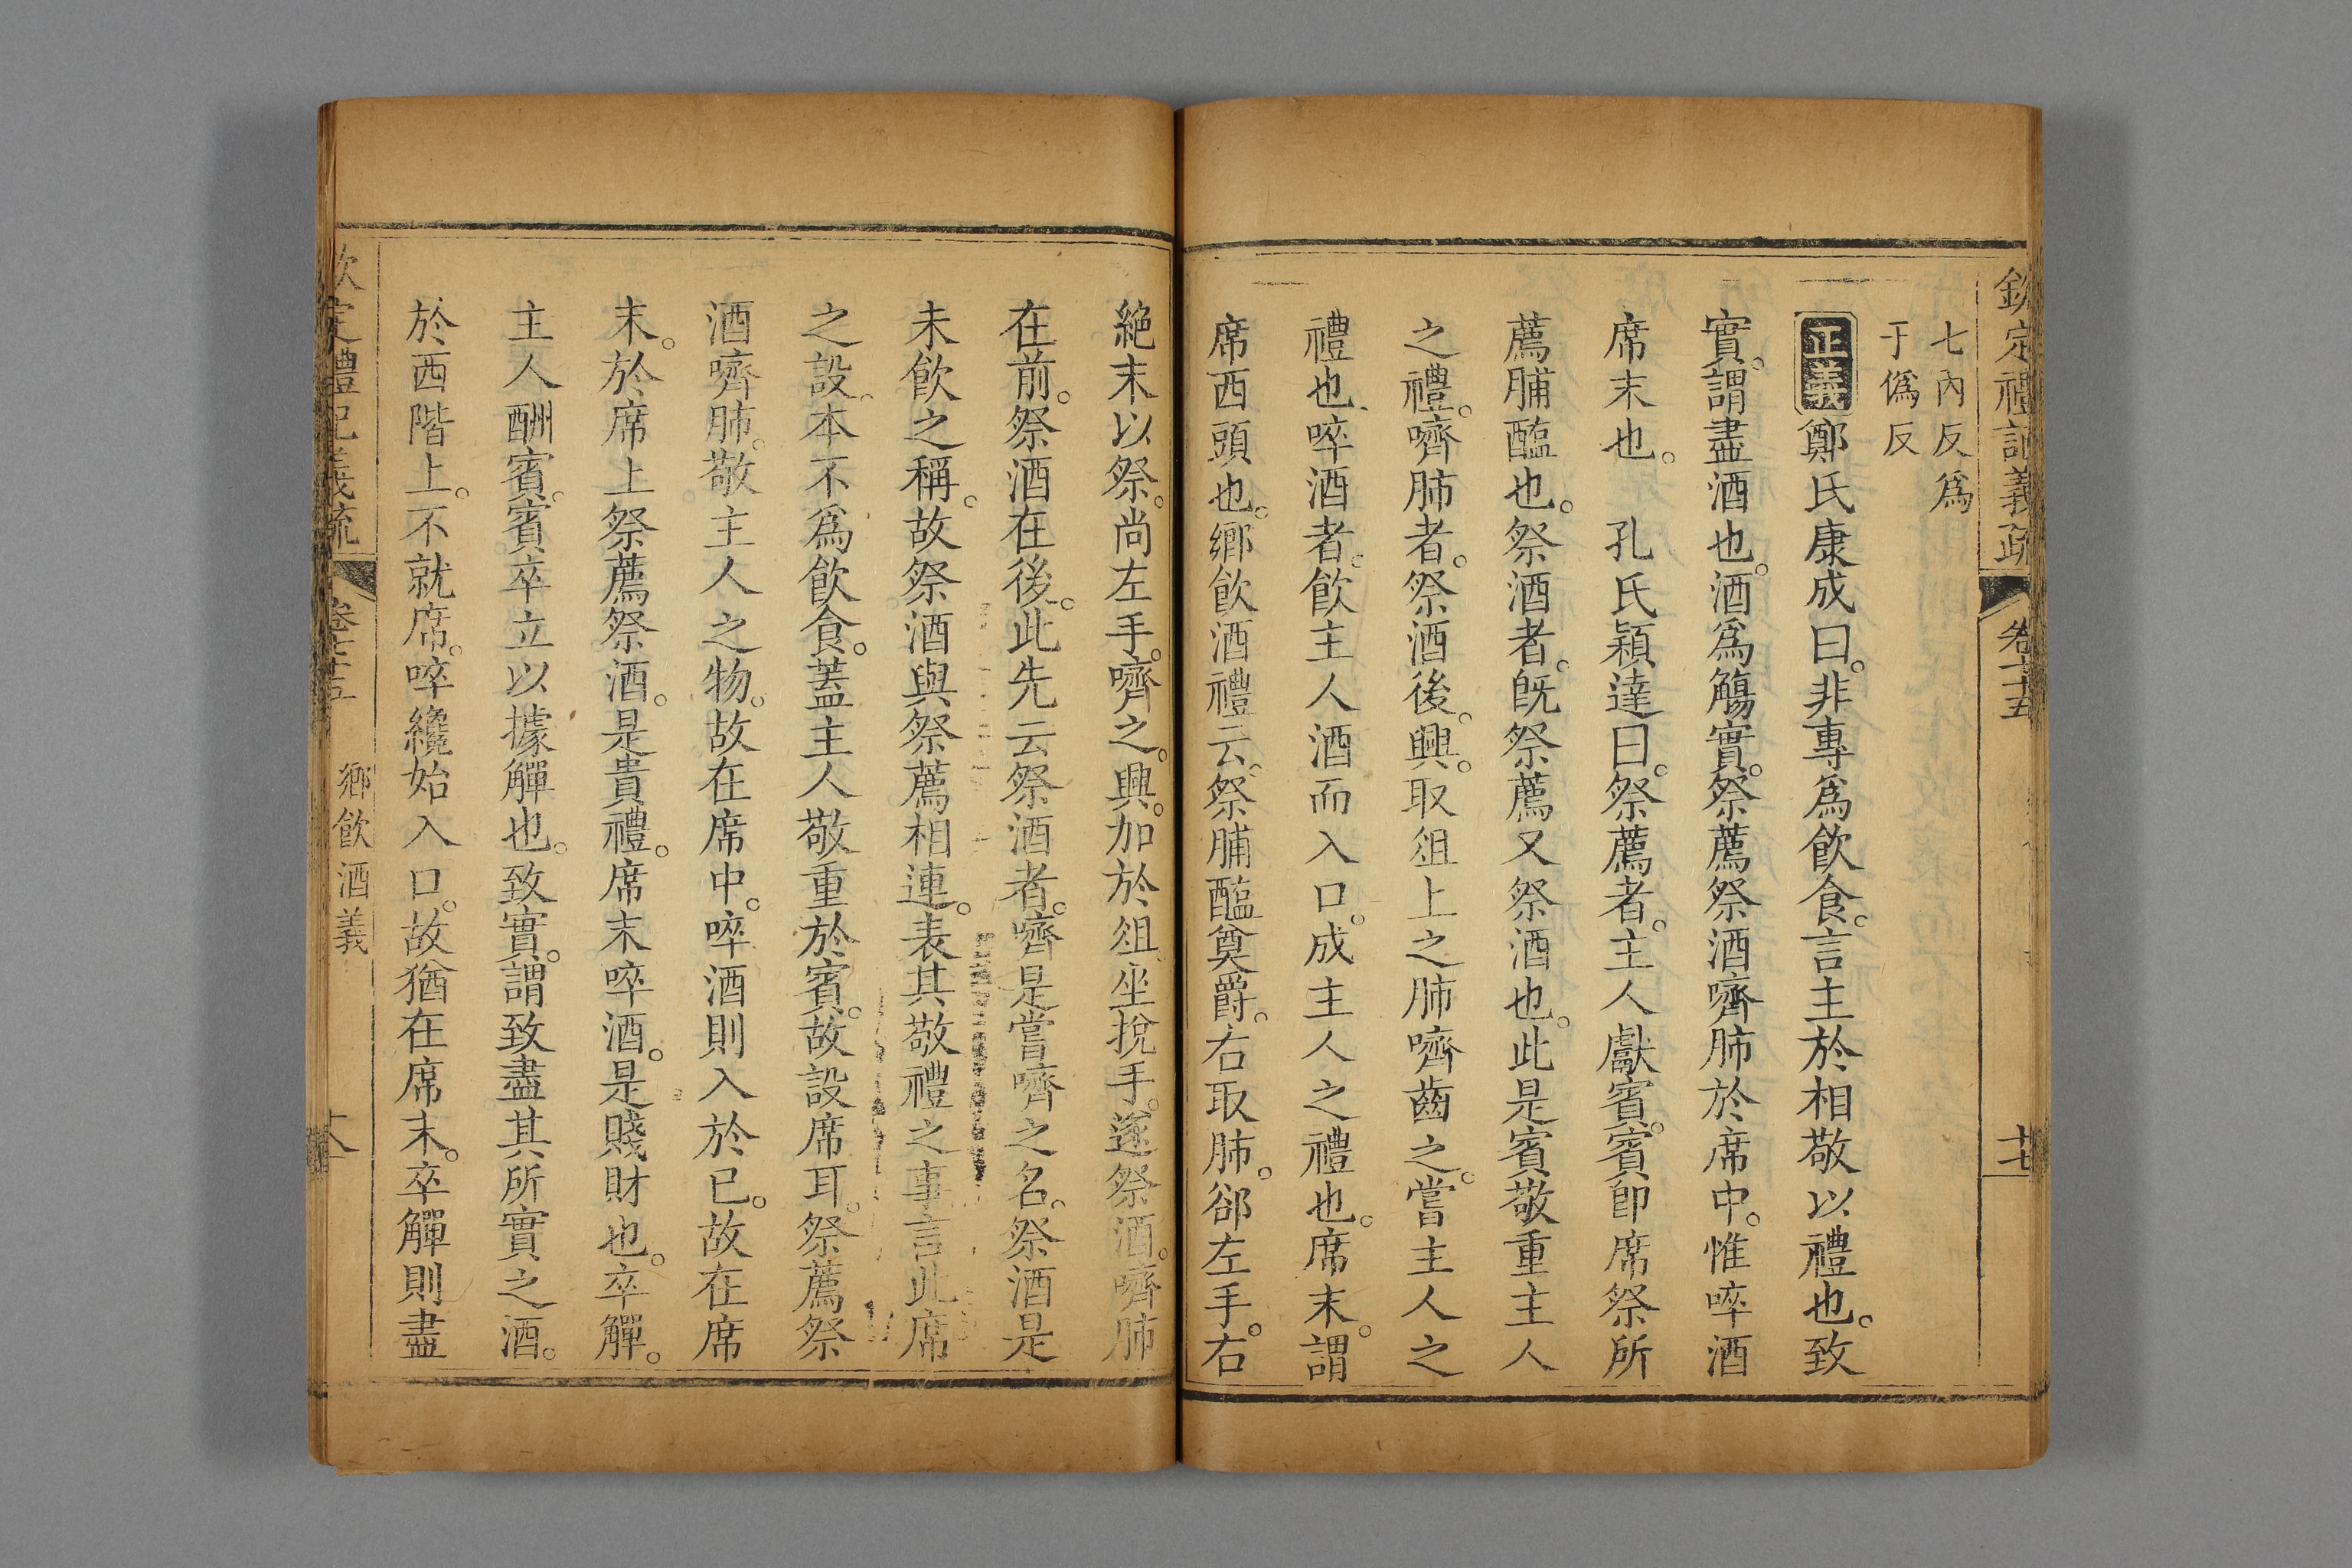 欽定禮記義疏 卷七十五 十七
七內反爲
于僞反
正義鄭氏康成曰。非專爲飲食。言主於相敬以禮也。致
實。謂盡酒也。酒爲觴實。祭薦祭酒嚌肺於席中。惟啐酒
席末也。 孔氏穎達曰。祭薦者。主人獻賓。賓卽席祭所
薦脯醢也。祭酒者。旣祭薦又祭酒也。此是賓敬重主人
之禮。嚌肺者。祭酒後。興。取俎上之肺嚌齒之。嘗主人之
禮也。啐酒者。飲主人酒而入口。成主人之禮也。席末。謂
席西頭也。鄉飲酒禮云。祭脯醢奠爵。右取肺。郤左手。右
絕末以祭。尚左手。嚌之。興。加於俎。坐挩手。遂祭酒。嚌肺
在前。祭酒在後。此先云祭酒者。嚌是嘗嚌之名。祭酒是
未飲之稱。故祭酒與祭薦相連。表其敬禮之事言此席
之設。本不爲飲食。蓋主人敬重於賓。故設席耳。祭薦祭
酒嚌肺。敬主人之物。故在席中。啐酒則入於已。故在席
末。於席上祭薦祭酒。是貴禮。席末啐酒。是賤財也。卒觶。
主人酬賓。賓卒立以據觶也。致實。謂致盡其所實之酒。
於西階上。不就席。啐纔始入口。故猶在席末。卒觶則盡
欽定禮記義疏 卷七十五 鄉飲酒義 十八